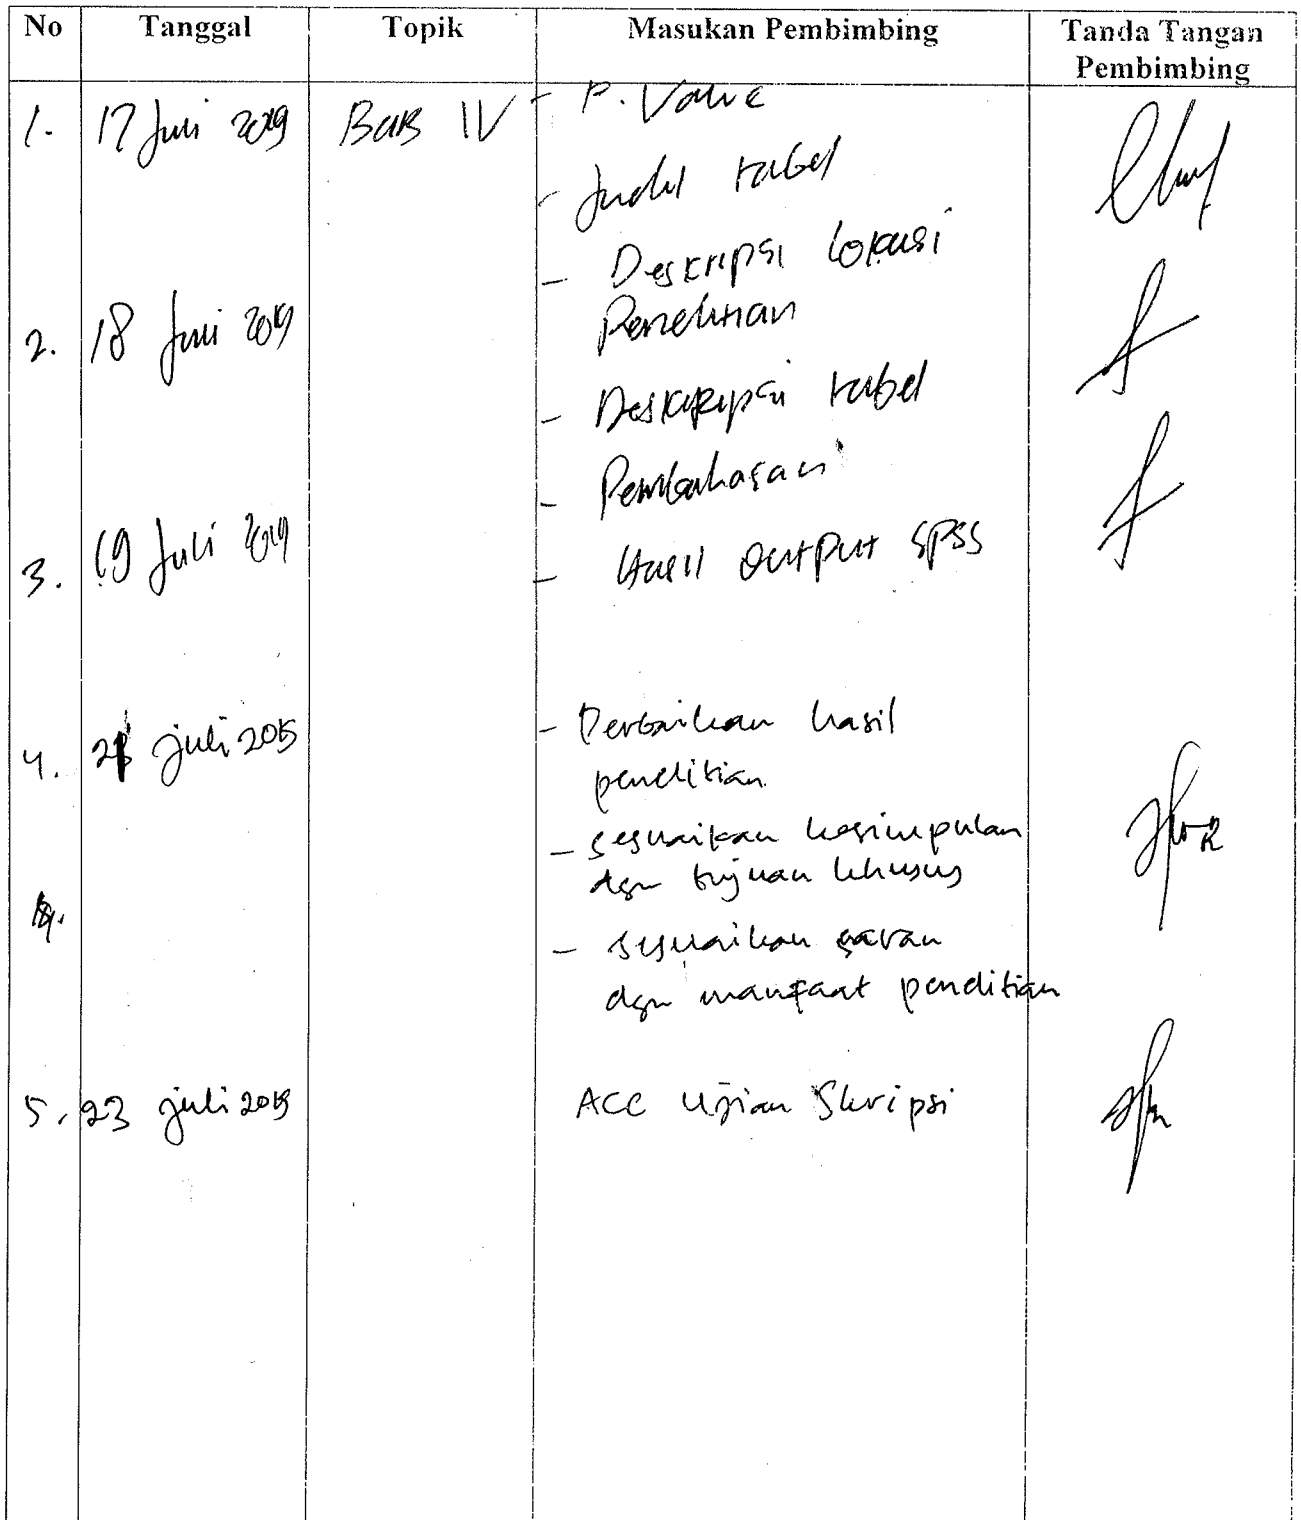 No Tanggal Topik Masukan Pembimbing Tanda Tangan Pembimbing
1. 17 Juli 2019 BAB IV - P. Value
- Judul tabel
- Deskripsi lokasi
Penelitian
2. 18 Juli 2019
- Deskripsi tabel
- Pembahasan
3. 19 Juli 2019
- Hasil Output SPSS
4. juli 2019
- Perbaikan hasil
penelitian
- sesuaikan kesimpulan
dgn tujuan khusus
- sesuaikan saran
dgn manfaat penelitian
5. 23 juli 2019 ACC Ujian Skripsi